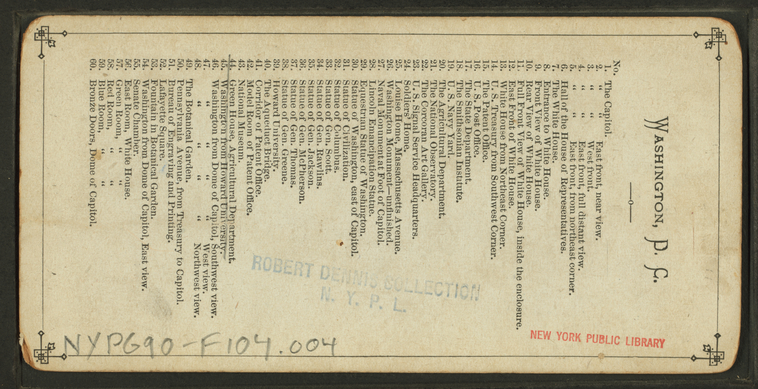 WASHINGTON, D. C.
No.
1. The Capitol.
2. " " East front, near view.
3. " " West front.
4. " " East front, full distant view.
5. " " East front, from northeast corner.
6. Hall of the House of Representatives.
7. The White House.
8. Entrance to White House.
9. Front View of White House.
10. Rear View of White House.
11. Full front View of White House, inside the enclosure.
12. East Front of White House.
13. White House from Northeast Corner.
14. U. S. Treasury from Southwest Corner.
15. The Patent Office.
16. U. S. Post Office.
17. The State Department.
18. The Smithsonian Institute.
19. U. S. Navy Yard.
20. The Agricultural Department.
21. The National Observatory.
22. The Corcoran Art Gallery.
23. U. S. Signal Service Headquarters.
24. Soldiers' Home.
25. Louise Home, Massachusetts Avenue.
26. Washington Monument—unfinished.
27. Naval Monument at Foot of Capitol.
28. Lincoln Emancipation Statue.
29. Equestrian Statue of Washington.
30. Statue of Washington, east of Capitol.
31. Statue of Civilization.
32. Statue of Columbus.
33. Statue of Gen. Scott.
34. Statue of Gen. Rawlins.
35. Statue of Gen. Jackson.
36. Statue of Gen. McPherson.
37. Statue of Gen. Thomas.
38. Statue of Gen. Greene.
39. Howard University.
40. The Aqueduct Bridge.
41. Corridor of Patent Office.
42. Model Room of Patent Office.
43. National Museum.
44. Green House, Agricultural Department.
45. Washington from Howard University.
46. Washington from Dome of Capitol, Southwest view.
47. " " " " West view.
48. " " " " Northwest view.
49. The Botanical Garden.
50. Pennsylvania Avenue, from Treasury to Capitol.
51. Bureau of Engraving and Printing.
52. Lafayette Square.
53. Fountain in Botanical Garden.
54. Washington from Dome of Capitol, East view.
55. Senate Chamber.
56. East Room, White House.
57. Green Room, " "
58. Red Room, " "
59. Blue Room, " "
60. Bronze Doors, Dome of Capitol.
ROBERT DENNIS COLLECTION
N. Y. P. L.
NEW YORK PUBLIC LIBRARY
NYPG90-F104.004